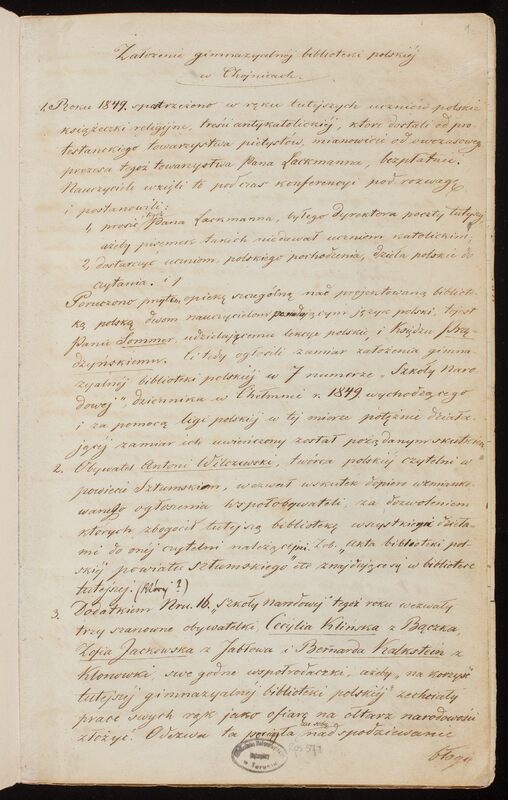 1
Założenie gimnazyalnéj biblioteki polskiéj
w Chojnicach.
1, Roku 1849. spostrzeżono w ręku tutejszych uczniów polskie
książeczki religijne, treści antykatolickiéj, które dostali od pro-
testanckiego towarzystwa pietystów, mianowicie od owczasowego
prezesa tegoż towarzystwa Pana Lackmanna, bezpłatnie.
Nauczyciele wzięli to podczas konferencyi pod rozwagę
i postanowili:
1, prosić tegoż Pana Lackmanna, byłego dyrektora poczty tutejszej
ażeby pisemek takich niedawał uczniom katolickim;
2, dostarczyć uczniom polskiego pochodzenia, dzieła polskie do
czytania. i
Poruczono przytem opiekę szczególną nad projektowaną bibliote-
ką polską dwom nauczycielom posiadającym język polski, to jest
Panu Sommer, udzielającemu lekcye polskie, i Księdzu Prą-
dzyńskiemu. Ci tedy ogłosili zamiar założenia gimna-
zyalnéj biblioteki polskiéj w 7 numerze "Szkoły Naro-
dowéj", dziennika w Chełmnie r. 1849 wychodzącego
i za pomocą ligi polskiéj w téj mierze potężnie działa-
jącéj zamiar ich uwieńczony został pożądanym skutkiem.
2. Obywatel Antoni Wilczewski, twórca polskiéj czytelni w
powiecie Sztumskim, wezwał wskutek dopiero wzmianko-
wanego ogłoszenia współobywateli, za dozwoleniem
których zbogacił tutejszą bibliotekę wszystkimi dzieła-
mi do onéj czytelni należącemi. Zob. "Akta biblioteki pol-
skiéj powiatu Sztumskiego" etc znajdujące się w bibliotece
tutejszej. (któréj?)
3. Dodatkiem Nru. 16. Szkoły Narodowéj tegoż roku wezwały
trzy szanowne obywatelki, Cecylia Klińska z Bączka,
Zofia Jackowska z Jabłowa i Bernarda Kalkstein z
Klonówki swe godne współrodaczki, ażeby "na korzyść
tutejszej gimnazyalnéj biblioteki polskiéj zechciały
prace swych rąk jako ofiarę na ołtarz narodowości
złożyć. Odezwa ta nadspodziewanie
błogo
w Toruniu
Rps 571